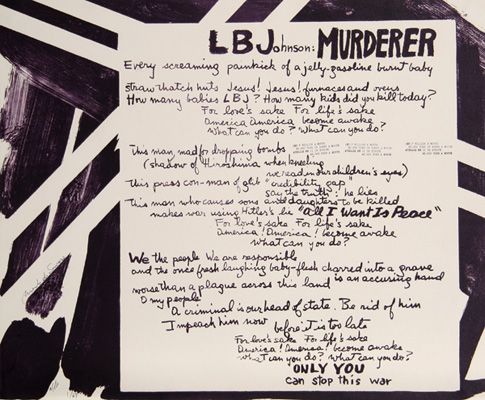 LBJohnson: MURDERER
Every screaming painkick of a jelly-gasoline burnt baby
straw thatch huts Jesus! Jesus! furnaces and ovens
How many babies LBJ? How many kids did you kill today?
For love's sake For life's sake
America America become awake
What can you do? What can you do?
This man mad for dropping bombs
(shadow of Hiroshima when kneeling
we read in our children's eyes)
This press con-man of glib "credibility gap"
say the truth: he lies
This man who causes sons and daughters to be killed
makes war using Hitler's lie "All I Want Is Peace"
For love's sake For life's sake
America! America! become awake
What can you do?
We the people We are responsible
and the once fresh laughing baby-flesh charred into a grave
is an accusing hand
worse than a plague across this land
O my people
A criminal is our head of state. Be rid of him
Impeach him now before it is too late
For love's sake For life's sake
America! America! become awake
What can you do? What can you do?
ONLY YOU
can stop this war